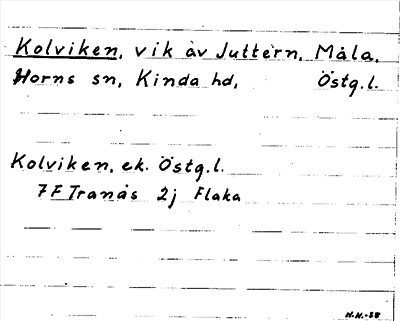 Kolviken, vik av Juttern, Måla,
Horns sn, Kinda hd, Östg.l.
Kolviken, ek. Östg.l.
7 F Tranås 2j Flaka
N.N.-38